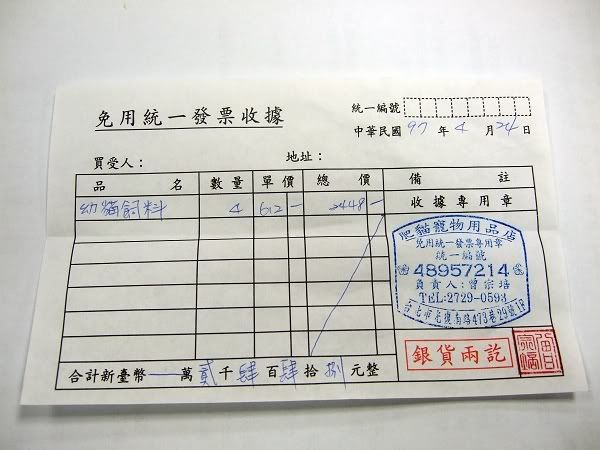 免用統一發票收據
統一編號
中華民國 97 年 4 月 24 日
買受人： 地址：
品 名 數量 單價 總 價 備 註
幼貓飼料 4 612- 2448-
收據專用章
肥貓寵物用品店
免用統一發票專用章
統一編號
48957214
負責人:曾宗培
TEL:2729-0593
台北市光復南路473巷29號1F
銀貨兩訖
合計新臺幣 萬 貳 千 肆 百 肆 拾 捌 元整